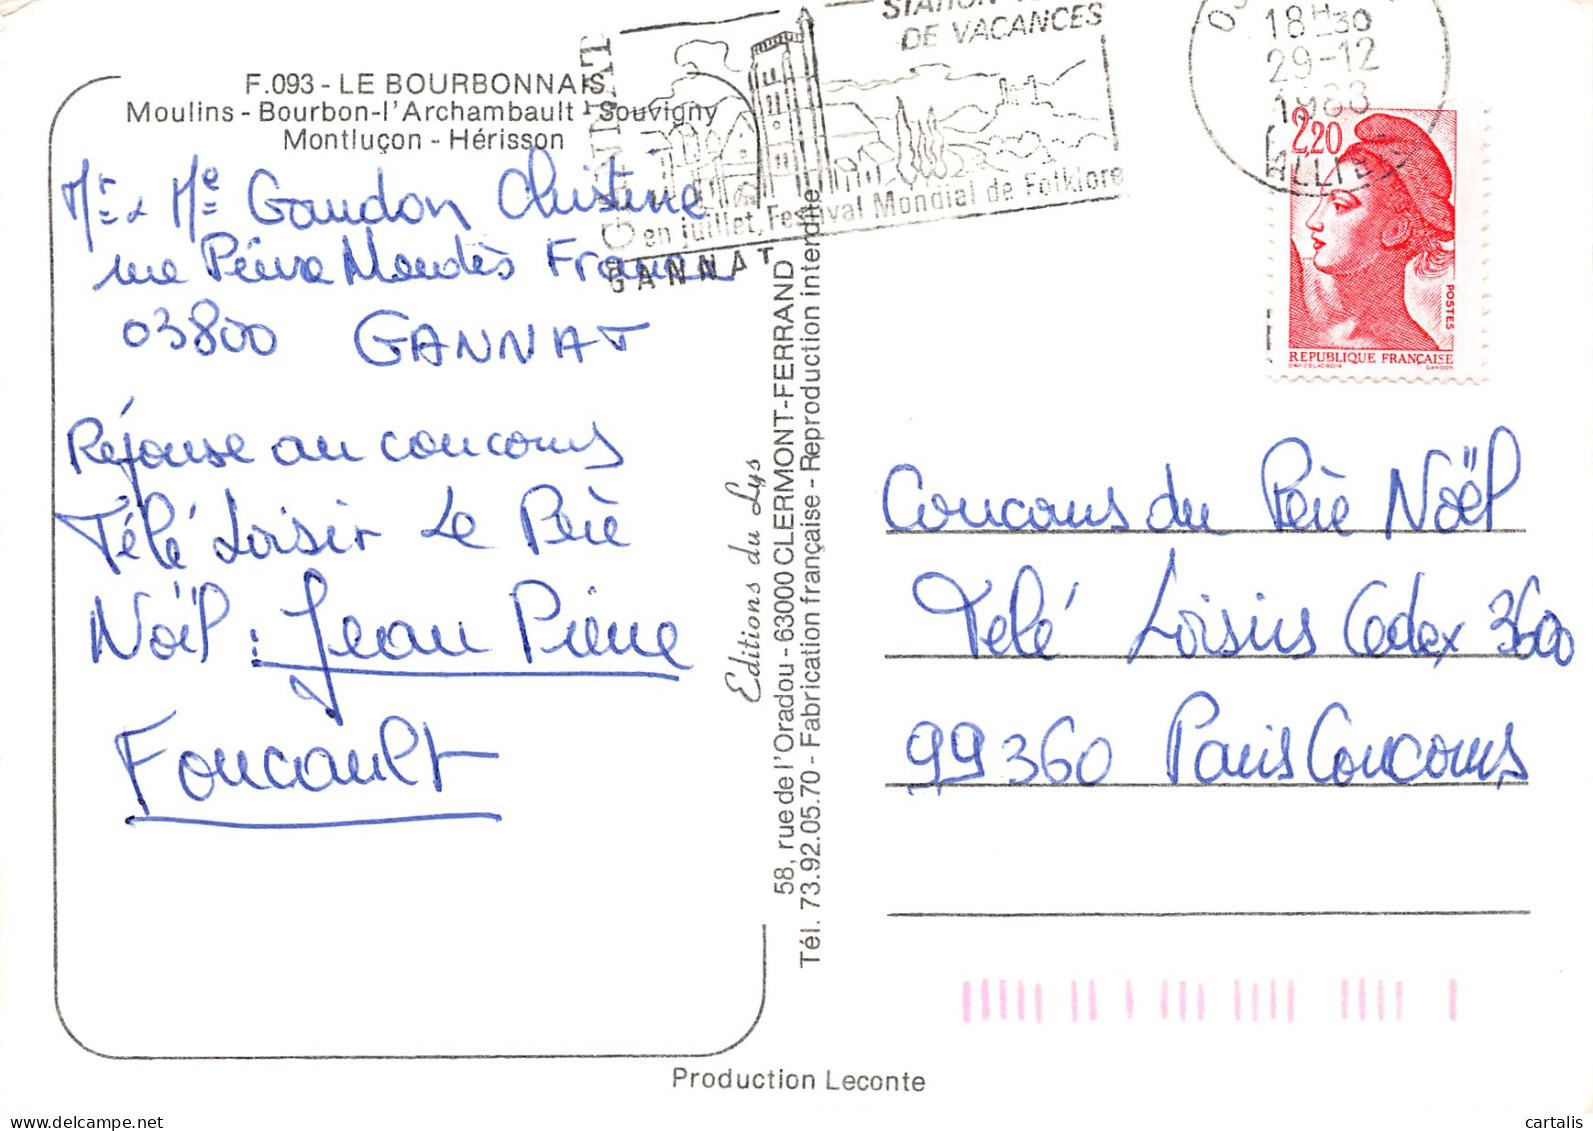 F.093 - LE BOURBONNAIS
Moulins - Bourbon-l'Archambault - Souvigny
Montluçon - Hérisson
Mr & Me Gaudon Christine
rue Pierre Mendès France
03800 GANNAT
Réponse au concours
Télé Loisir Le Père
Noël : Jean Pierre
Foucault
STATION
DE VACANCES
en juillet, Festival Mondial de Folklore
GANNAT
18H30
29-12
1988
ALLIER
2,20
POSTES
REPUBLIQUE FRANÇAISE
D'AP. DELACROIX GANDON
Editions du Lys
58, rue de l'Oradou - 63000 CLERMONT-FERRAND
Tél. 73.92.05.70 - Fabrication française - Reproduction interdite
Concours du Père Noël
Télé Loisirs Cedex 3600
99360 Paris Concours
Production Leconte
cartalis
delcampe.net